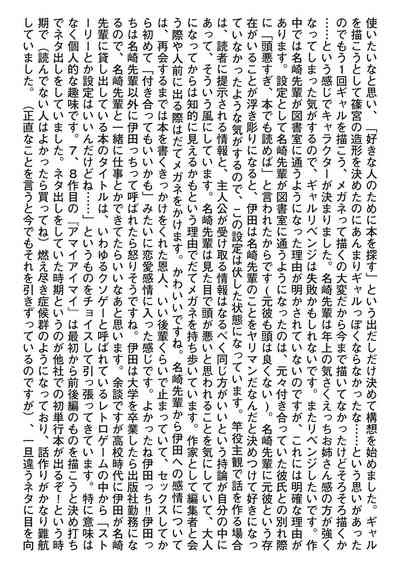 使いたいなと思い、「好きな人のために本を探す」という出だしだけ決めて構想を始めました。ギャル
を描こうとして篠宮の造形を決めたのにあんまりギャルっぽくならなかったな……という思いがあった
のでもう1回ギャルを描こう、メガネって描くの大変だから今まで描いてなかったけどそろそろ描くか
……という感じでキャラクターが決まりました。名崎先輩は年上の気さくえっちお姉さん感の方が強く
なってしまった気がするので、ギャルリベンジは失敗かもしれないです。またリベンジしたいです。作
中では名崎先輩が図書室に通うようになった理由が明かされていないのですが、これには明確な理由が
あります。設定として名崎先輩が図書室に通うようになったのは、元々付き合っていた彼氏との別れ際
に「頭悪すぎ、本でも読めば」と言われたからです（元彼も頭は良くない）。名崎先輩に元彼という存
在がいることが浮き彫りになると、伊田は名崎先輩のことをヤリマンだなんだと決めつけて好きになっ
ていなかったような気がするので、この設定は伏した状態になっています。竿役主観で話を作る場合
は、読者に提示される情報と、主人公が受け取る情報はなるべく同じ方がいいという持論が自分の中に
あって、そういう風にしています。名崎先輩は見た目で頭が悪いと思われることを気にしていて、大人
になってからは知的に見えるかもという理由でだてメガネを持ち歩いています。作家として編集者と会
う際や人前に出る際はだてメガネをかけます。かわいいですね。名崎先輩から伊田への感情について
は、再会するまでは本を書くきっかけをくれた恩人、いい後輩くらいで止まっていて、セックスしてか
ら初めて「付き合ってもいいかも」みたいに恋愛感情に入った感じです。よかったね伊田っち‼伊田っ
ちは名崎先輩以外に伊田っちって呼ばれたら怒りそうですね。伊田は大学を卒業したら出版社勤務にな
るので、名崎先輩と一緒に仕事とかできてたらいいなあと思います。余談ですが高校時代に伊田が名崎
先輩に貸し出している本のタイトルは、いわゆるクソゲーと呼ばれているレトロゲームの中から「スト
ーリーとか設定はいいんだけどね……」というものをチョイスして引っ張ってきています。特に意味は
なく個人的な趣味です。7、8作目の「アマイアマイ」は最初から前後編のものを描こうと決め打ち
でネタ出しをしていました。ネタ出しをしていた時期というのが他社での初単行本が出るぞ！という時
期で（読んでない人はよかったら買ってね）燃え尽き症候群のようになっており、話作りがかなり難航
していました。（正直なことを言うと今でもそれを引きずっているのですが）一旦違うネタに目を向